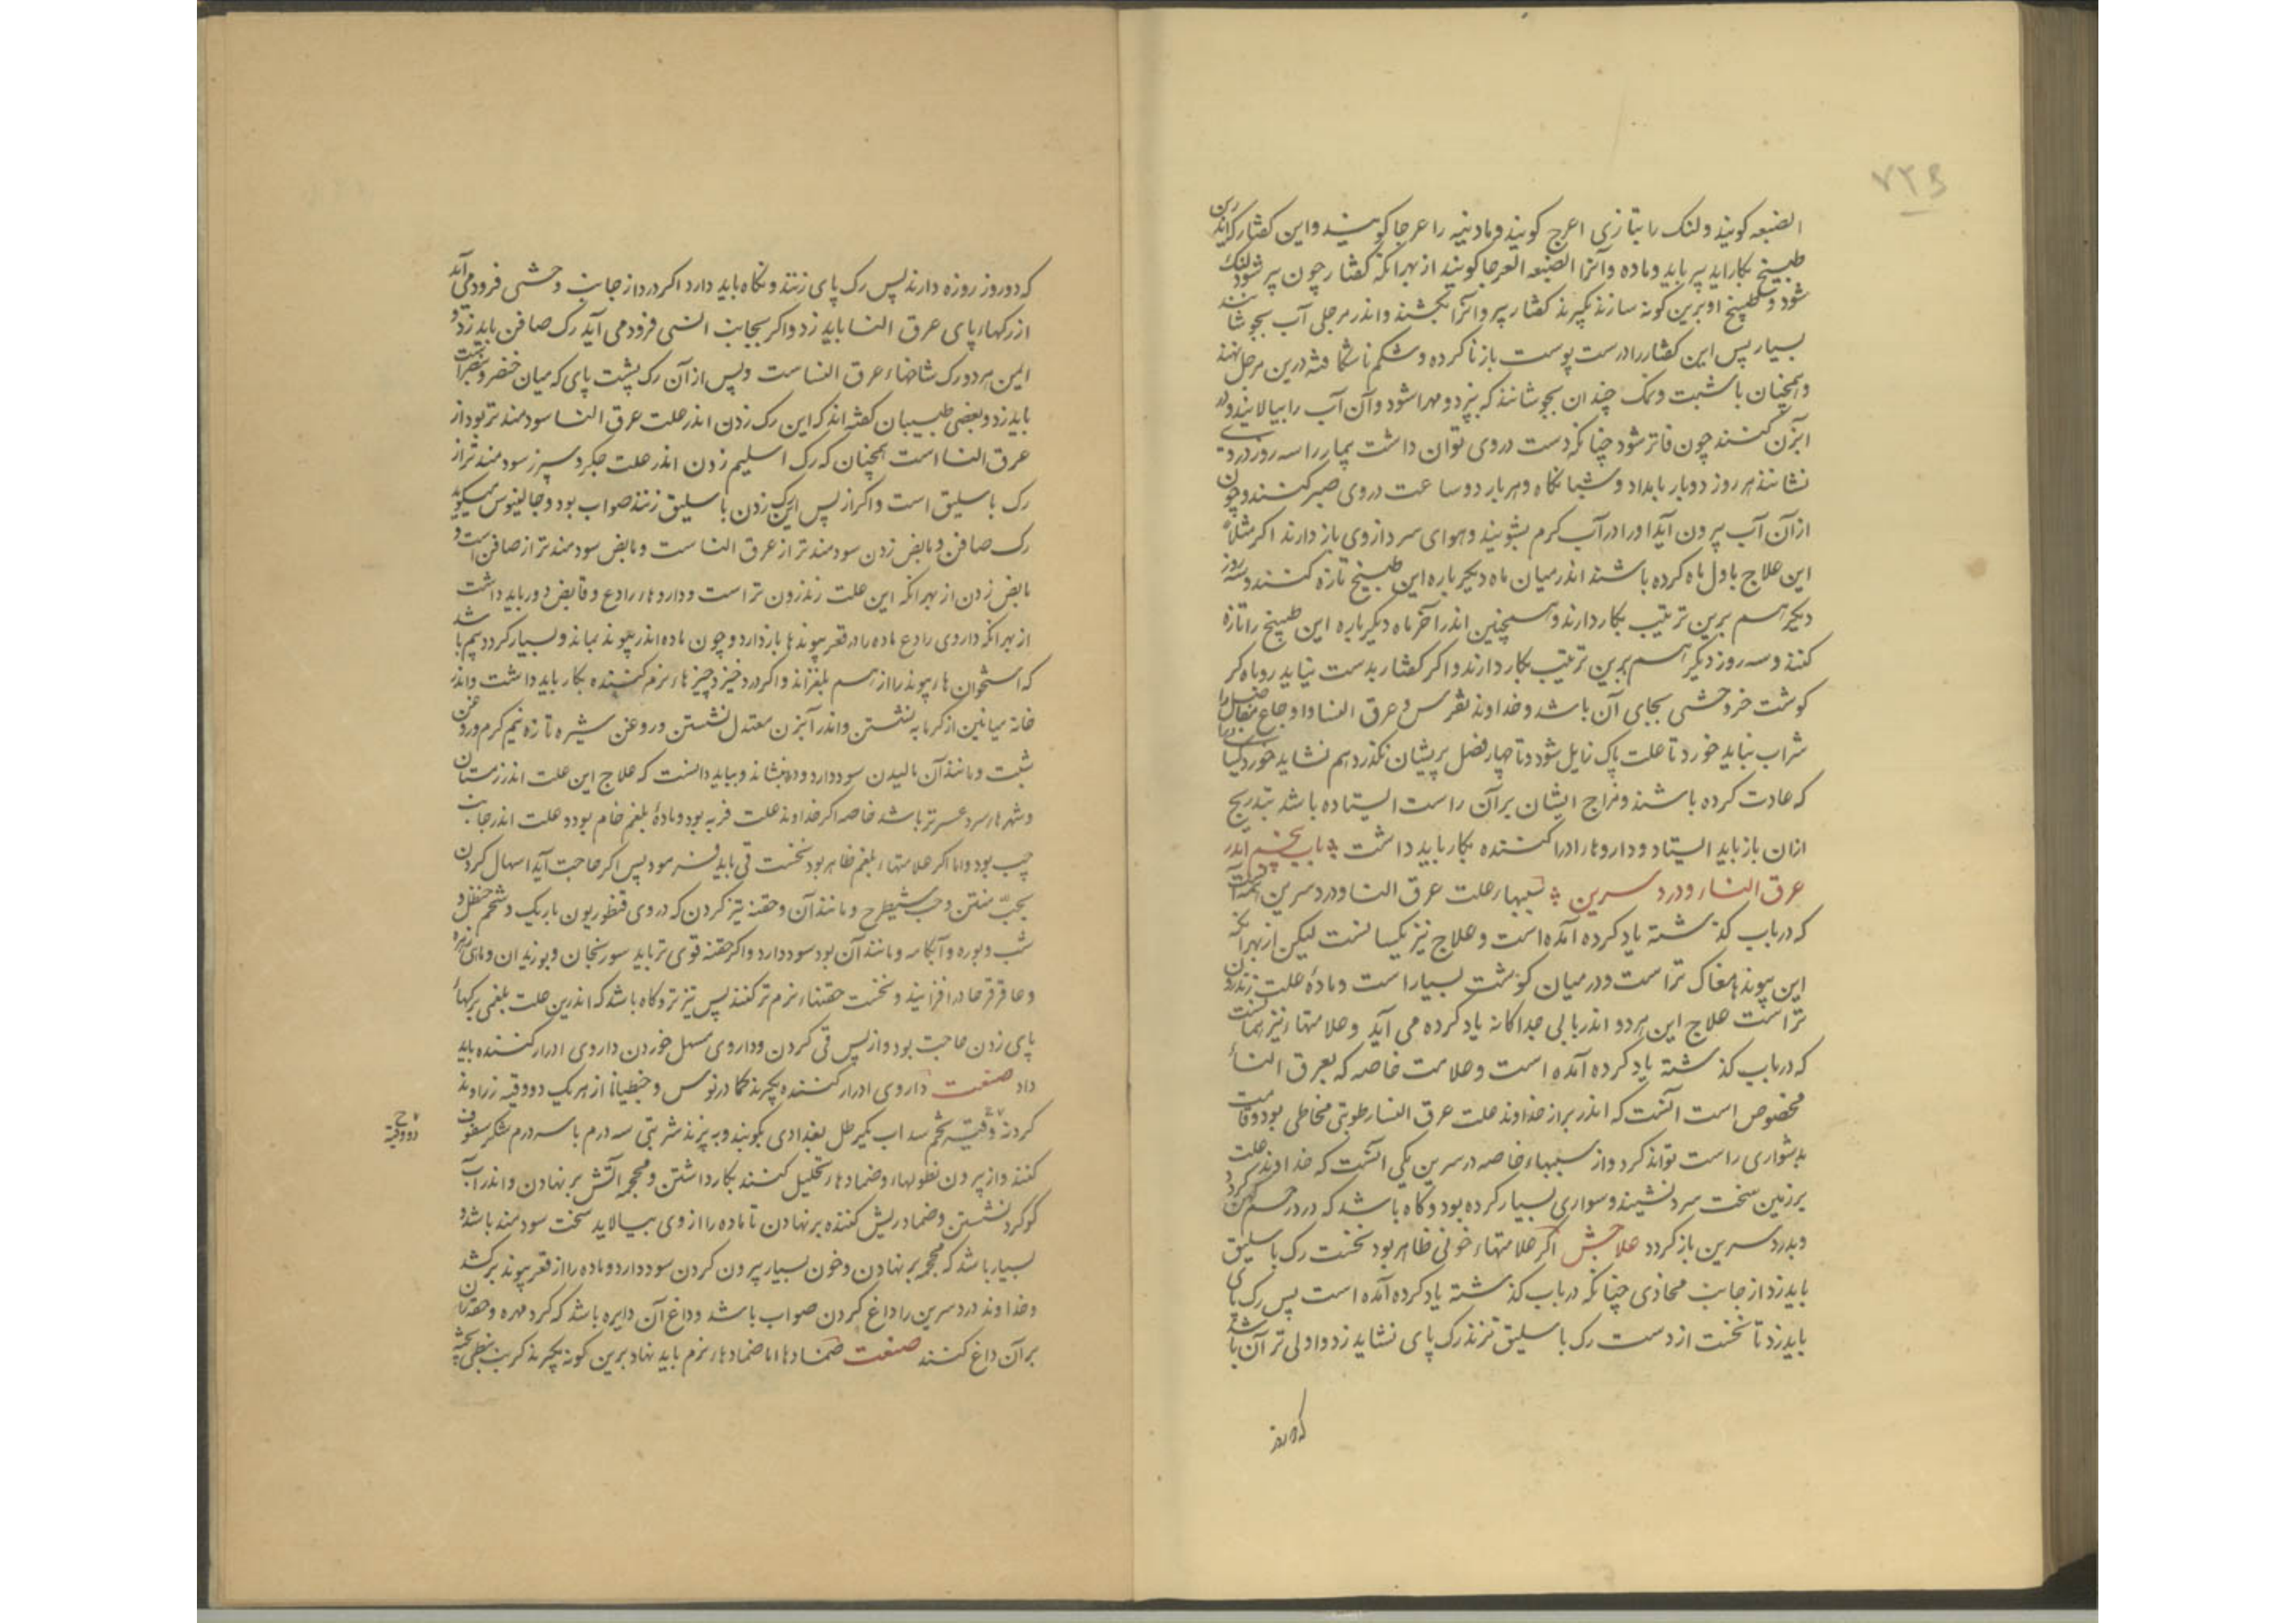 ۷۳۹
الضبعه کویند و لنک را بتازی اعرج کویند و مادینه را عرجا کویند و این کفتار کزین
طبیخ بکار اید پیر باید و ماده و آنرا الضبعه العرجا کویند از بهر انکه کفتار چون پیر شود لنک
شود و طبیخ او برین کونه سازند بکیرند کفتار پیر و آنرا بکشند و اندر مرجلی آب بجوشانند
بسیار پس این کفتار را درست پوست باز ناکرده و شکم ناشکافته درین مرجل نهند
و همچنان با شبت و نمک چندان بجوشانند که بپزد و مهرا شود و آن آب را بپالایند و
ابزن کنند چون فاتر شود چنانکه دست در وی توان داشت بیمار را سه روز در وی
نشانند هر روز دو بار بامداد و شبانکاه و هر بار دو ساعت در وی صبر کنند و چون
از آن آب بیرون آید او را در آب کرم بشویند و هوای سرد از وی باز دارند اکر مثلا
این علاج باول ماه کرده باشند اندر میان ماه دیکر باره این طبیخ تازه کنند و سه روز
دیکر هم برین ترتیب بکار دارند و همچنین اندر آخر ماه دیکر باره این طبیخ را تازه
کنند و سه روز دیکر هم برین ترتیب بکار دارند و اکر کفتار بدست نیاید روباه کر
کوشت خر وحشی بجای آن باشد و خداوند نقرس و عرق النسا و اوجاع مفاصل را
شراب نباید خورد تا علت پاک زایل شود و تا چهار فصل بریشان نکذرد هم نشاید خورد کسانی
که عادت کرده باشند و مزاج ایشان بر آن راست ایستاده باشد بتدریج
ازان باز باید ایستاد و داروها ادرار کننده بکار باید داشت باب پنجم اندر
عرق النسا و درد سرین سببهاء علت عرق النسا و درد سرین همانست
که در باب کذشته یاد کرده آمده است و علاج نیز یکسانست لیکن از بهر آنکه
این پیوندها مغاک تر است و در میان کوشت بسیار است و مادهٔ علت زندرون
تر است علاج این هر دو اندر بابی جداکانه یاد کرده می آید و علامتها نیز همانست
که در باب کذشته یاد کرده آمده است و علامت خاصه که بعرق النسا
مخصوص است آنست که اندر براز خداوند علت عرق النسا رطوبتی مخاطی بود و قامت
بدشواری راست تواند کرد و از سببهاء خاصه در سرین یکی آنست که خداوند علت
بر زمین سخت سرد نشیند و سواری بسیار کرده بود و کاه باشد که درد رحم کهن کردد
و بدرد سرین باز کردد علاجش اکر علامتهاء خونی ظاهر بود نخست رک باسلیق
باید زد از جانب محاذی چنانکه در باب کذشته یاد کرده آمده است پس رک پای
باید زد تا نخست از دست رک باسلیق نزنند رک پای نشاید زد و اولی تر آن باشد
که دو روز
که دو روز روزه دارند پس رک پای زنند و نکاه باید دارد اکر درد از جانب وحشی فرود می آید
از رکهاء پای عرق النسا باید زد و اکر بجانب انسی فرود می آید رک صافن باید زد و
این هر دو رک شاخهاء عرق النسا است و پس از آن رک پشت پای که میان خنصر و بنصر است
باید زد و بعضی طبیبان کفته اند که این رک زدن اندر علت عرق النسا سودمند تر بود از
عرق النسا است همچنان که رک اسلیم زدن اندر علت جکر و سپرز سودمند تر از
رک باسلیق است و اکر از پس این رک زدن باسلیق زنند صواب بود و جالینوس میکوید
رک صافن و مابض زدن سودمند تر از عرق النسا ست و مابض سودمند تر از صافن است و
مابض زدن از بهر انکه این علت زندرون تر است و داروهاء رادع و قابض دور باید داشت
از بهر انکه داروی رادع ماده را در قعر پیوندها باز دارد و چون ماده اندر پیوند بماند و بسیار کردد بیم باشد
که استخوان هاء پیوند را از هم بلغزاند و اکر درد خیزد چیزهاء نرم کننده بکار باید داشت و اندر
خانه میانین از کرمابه نشستن و اندر آبزن معتدل نشستن و روغن شیره تازه نیم کرم و روغن
شبت و مانند آن مالیدن سود دارد و درد بنشاند و بباید دانست که علاج این علت اندر زمستان
و شهرهاء سرد عسر تر باشد خاصه اکر خداوند علت فربه بود و مادهٔ بلغم خام بود و علت اندر جانب
چپ بود و اما اکر علامتهاء بلغم ظاهر بود نخست قی باید فرمود پس اکر حاجت آید اسهال کردن
بحبّ منتن و حب شیطرج و مانند آن و حقنه تیز کردن که در وی قنطوریون باریک و شحم حنظل و
شب و بوره و آبکامه و مانند آن بود سود دارد و اکر حقنه قوی تر باید سورنجان و بوزیدان و ماهی زهره
و عاقرقرحا در افزایند و نخست حقنهاء نرم تر کنند پس تیزتر و کاه باشد که اندرین علت بلغمی برکهاء
پای زدن حاجت بود و از پس قی کردن و داروی مسهل خوردن داروی ادرار کننده باید
داد صفت داروی ادرار کننده بکیرند کمادریوس و جنطیانا از هر یک دو وقیه زراوند
کرد نه وقیه تخم سداب یکرطل بغدادی بکوبند و ببیزند شربتی سه درم با سه درم شکر سفوف
دو وقیه
کنند و از بیرون نطولها و ضمادهاء تحلیل کننده بکار داشتن و محجمه آتش برنهادن و اندر آب
کوکرد نشستن و ضماد ریش کننده برنهادن تا ماده را از وی بپالاید سخت سودمند باشد و
بسیار باشد که محجمه برنهادن و خون بسیار بیرون کردن سود دارد و ماده را از قعر پیوند برکشد
و خداوند درد سرین را داغ کردن صواب باشد و داغ آن دایره باشد که کرد مهره و حقه ران
بر آن داغ کنند صفت ضمادها اما ضمادهاء نرم باید نهاد برین کونه بکیرند کرنب نبطی پخته